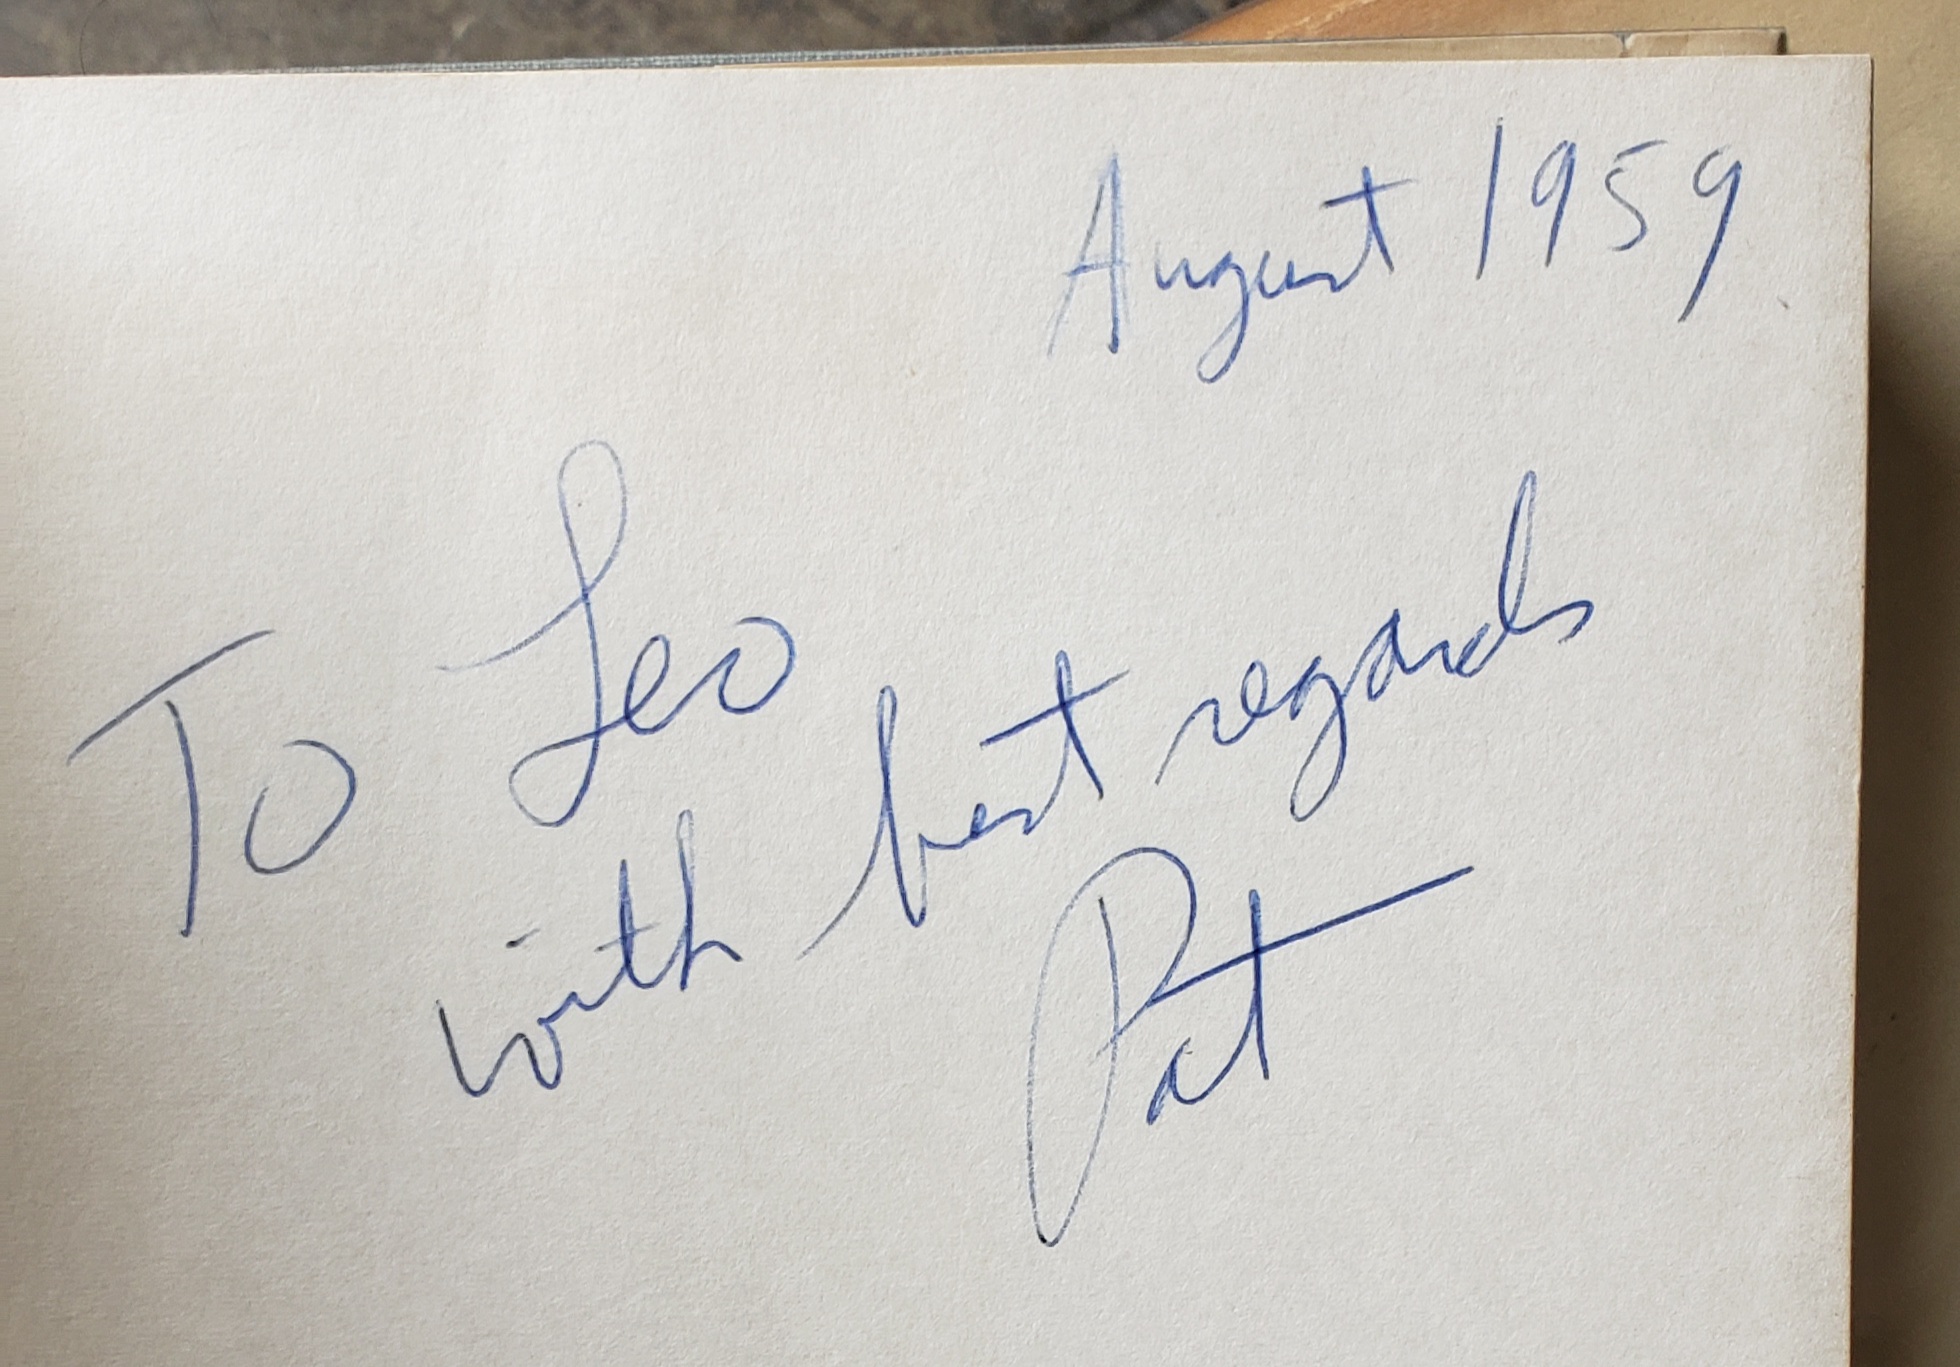 August 1959
To Leo
with best regards
Pat